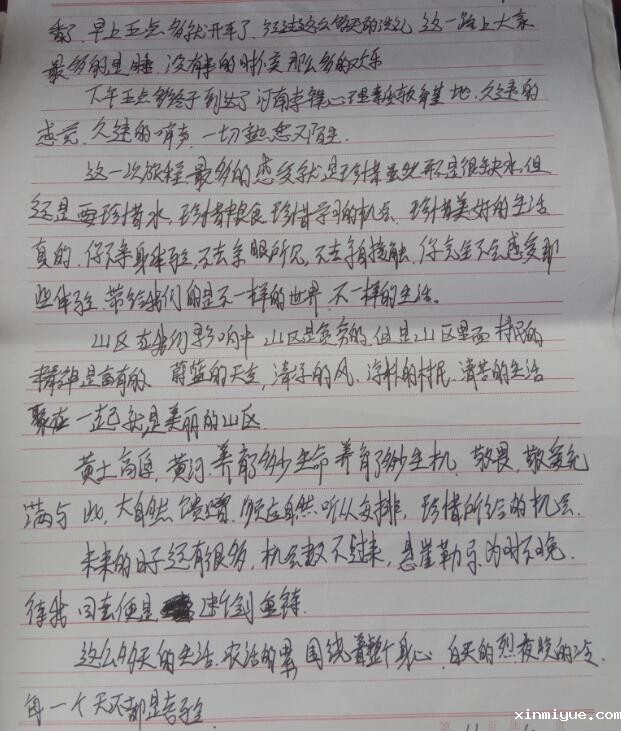 了,早上五点多就开车了,经过这么多天的洗礼 这一路上大家
最多的是睡,没有来的时候那么多的欢乐
下午五点多终于到达了河南李镇心理素质教育基地,久违的
感觉,久违的哨声,一切熟悉又陌生.
这一次旅程最多的感受就是珍惜虽然不是很缺水,但
还是要珍惜水,珍惜粮食 珍惜学习的机会 珍惜美好的生活
真的,你不亲身体验,不去亲眼所见,不去亲自接触,你完全不会感受那
些体验,带给我们的是不一样的世界,不一样的生活。
山区在我们影响中 山区是贫穷的,但是山区里面 村民的
精神是富有的 蔚蓝的天空,清凉的风,淳朴的村民,清苦的生活
聚在一起就是美丽的山区.
黄土高原,黄河,养育了多少生命 养育了多少生机,敬畏,敬爱充
满与此,大自然馈赠,顺应自然,听从安排,珍惜所给的机会.
未来的日子还有很多,机会数不过来,悬崖勒马为时不晚.
待我回去便是 断剑重铸.
这么多天的生活,农活的累,围绕着整个身心,白天的烈夜晚的冷.
每一个天都是考验.
第 页 共 页
xinmiyue.com